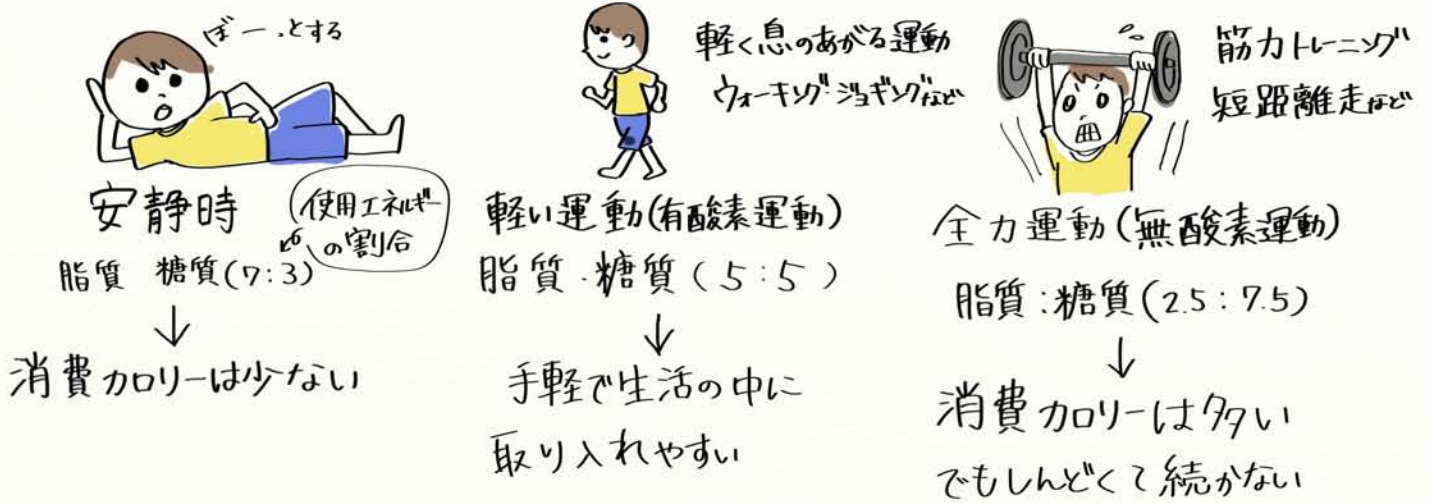 ぼーっとする
安静時
使用エネルギー
の割合
脂質 糖質(7:3)
↓
消費カロリーは少ない
軽く息のあがる運動
ウォーキング・ジョギングなど
軽い運動(有酸素運動)
脂質・糖質(5:5)
↓
手軽で生活の中に
取り入れやすい
筋力トレーニング
短距離走など
全力運動(無酸素運動)
脂質:糖質(2.5:7.5)
↓
消費カロリーは多い
でもしんどくて続かない